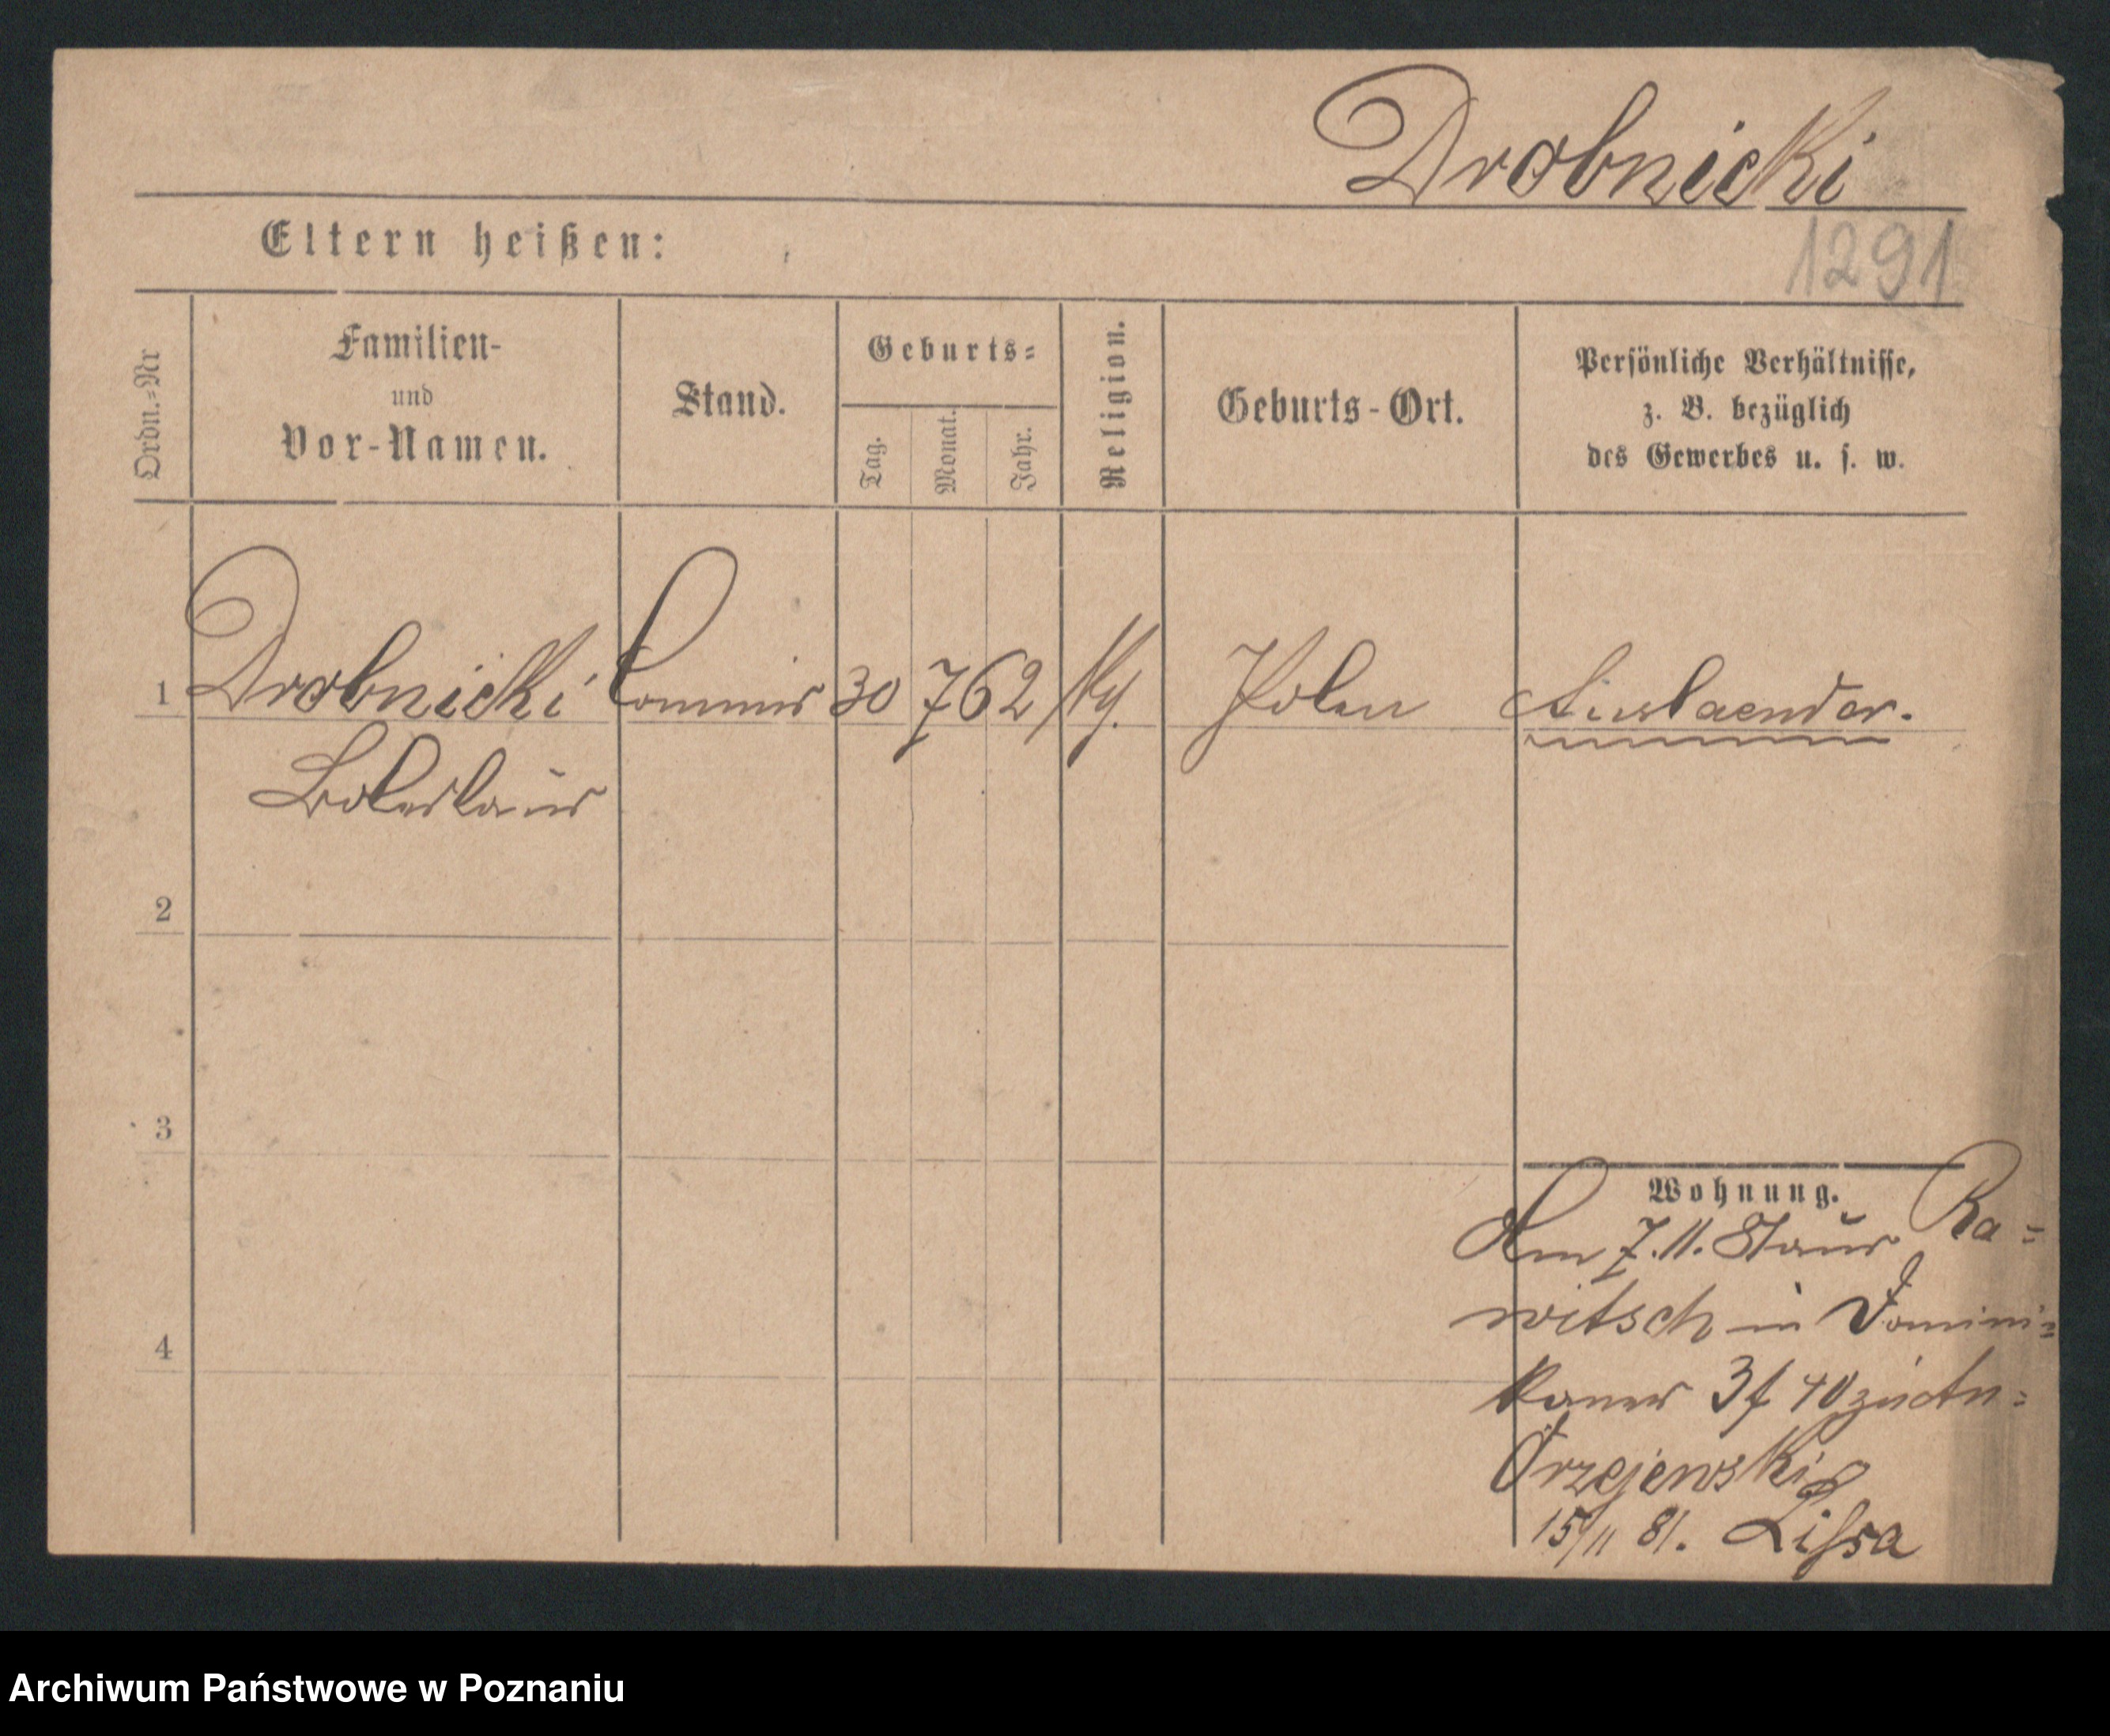 Drobnicki
1291
Eltern heißen:
Ordn.-Nr
Familien-
und
Vor-Namen.
Stand.
Geburts-
Tag.
Monat.
Jahr.
Religion.
Geburts-Ort.
Persönliche Verhältnisse,
z. B. bezüglich
des Gewerbes u. s. w.
1 Drobnicki Commis 30 7 62 Polen Auslaender.
Boleslaus
2
3
4
Wohnung.
Am 7.11. Ra=
witsch in Domini=
kaner 3
Orzejewski
15/11 81. Lissa
Archiwum Państwowe w Poznaniu